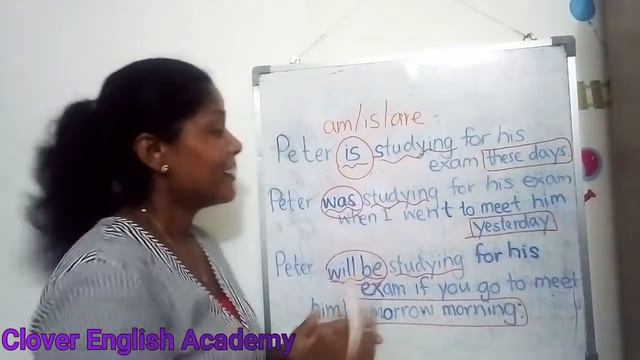 am/is/are
Peter is studying for his
exam these days
Peter was studying for his exam
when I went to meet him
yesterday
Peter will be studying for his
exam if you go to meet
him morrow morning.
Clover English Academy